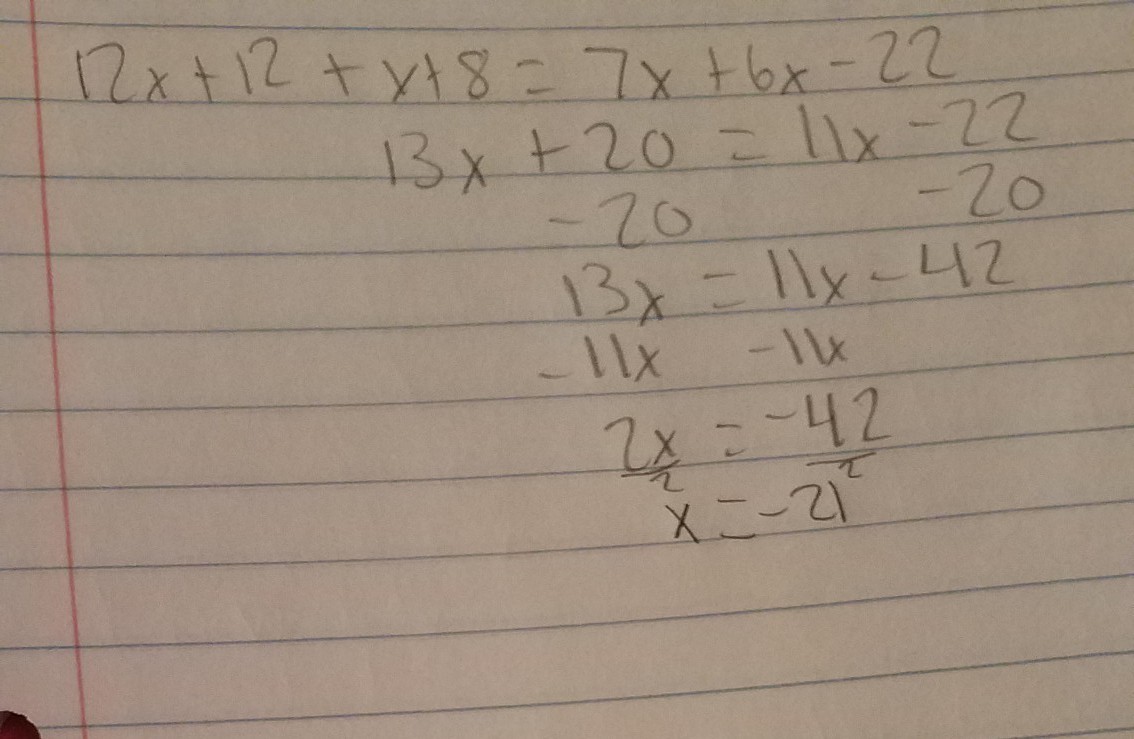 12x+12 + x+8 = 7x +6x -22
13x + 20 = 11x -22
-20 -20
13x = 11x - 42
-11x -11x
2x = -42
2 2
x = -21